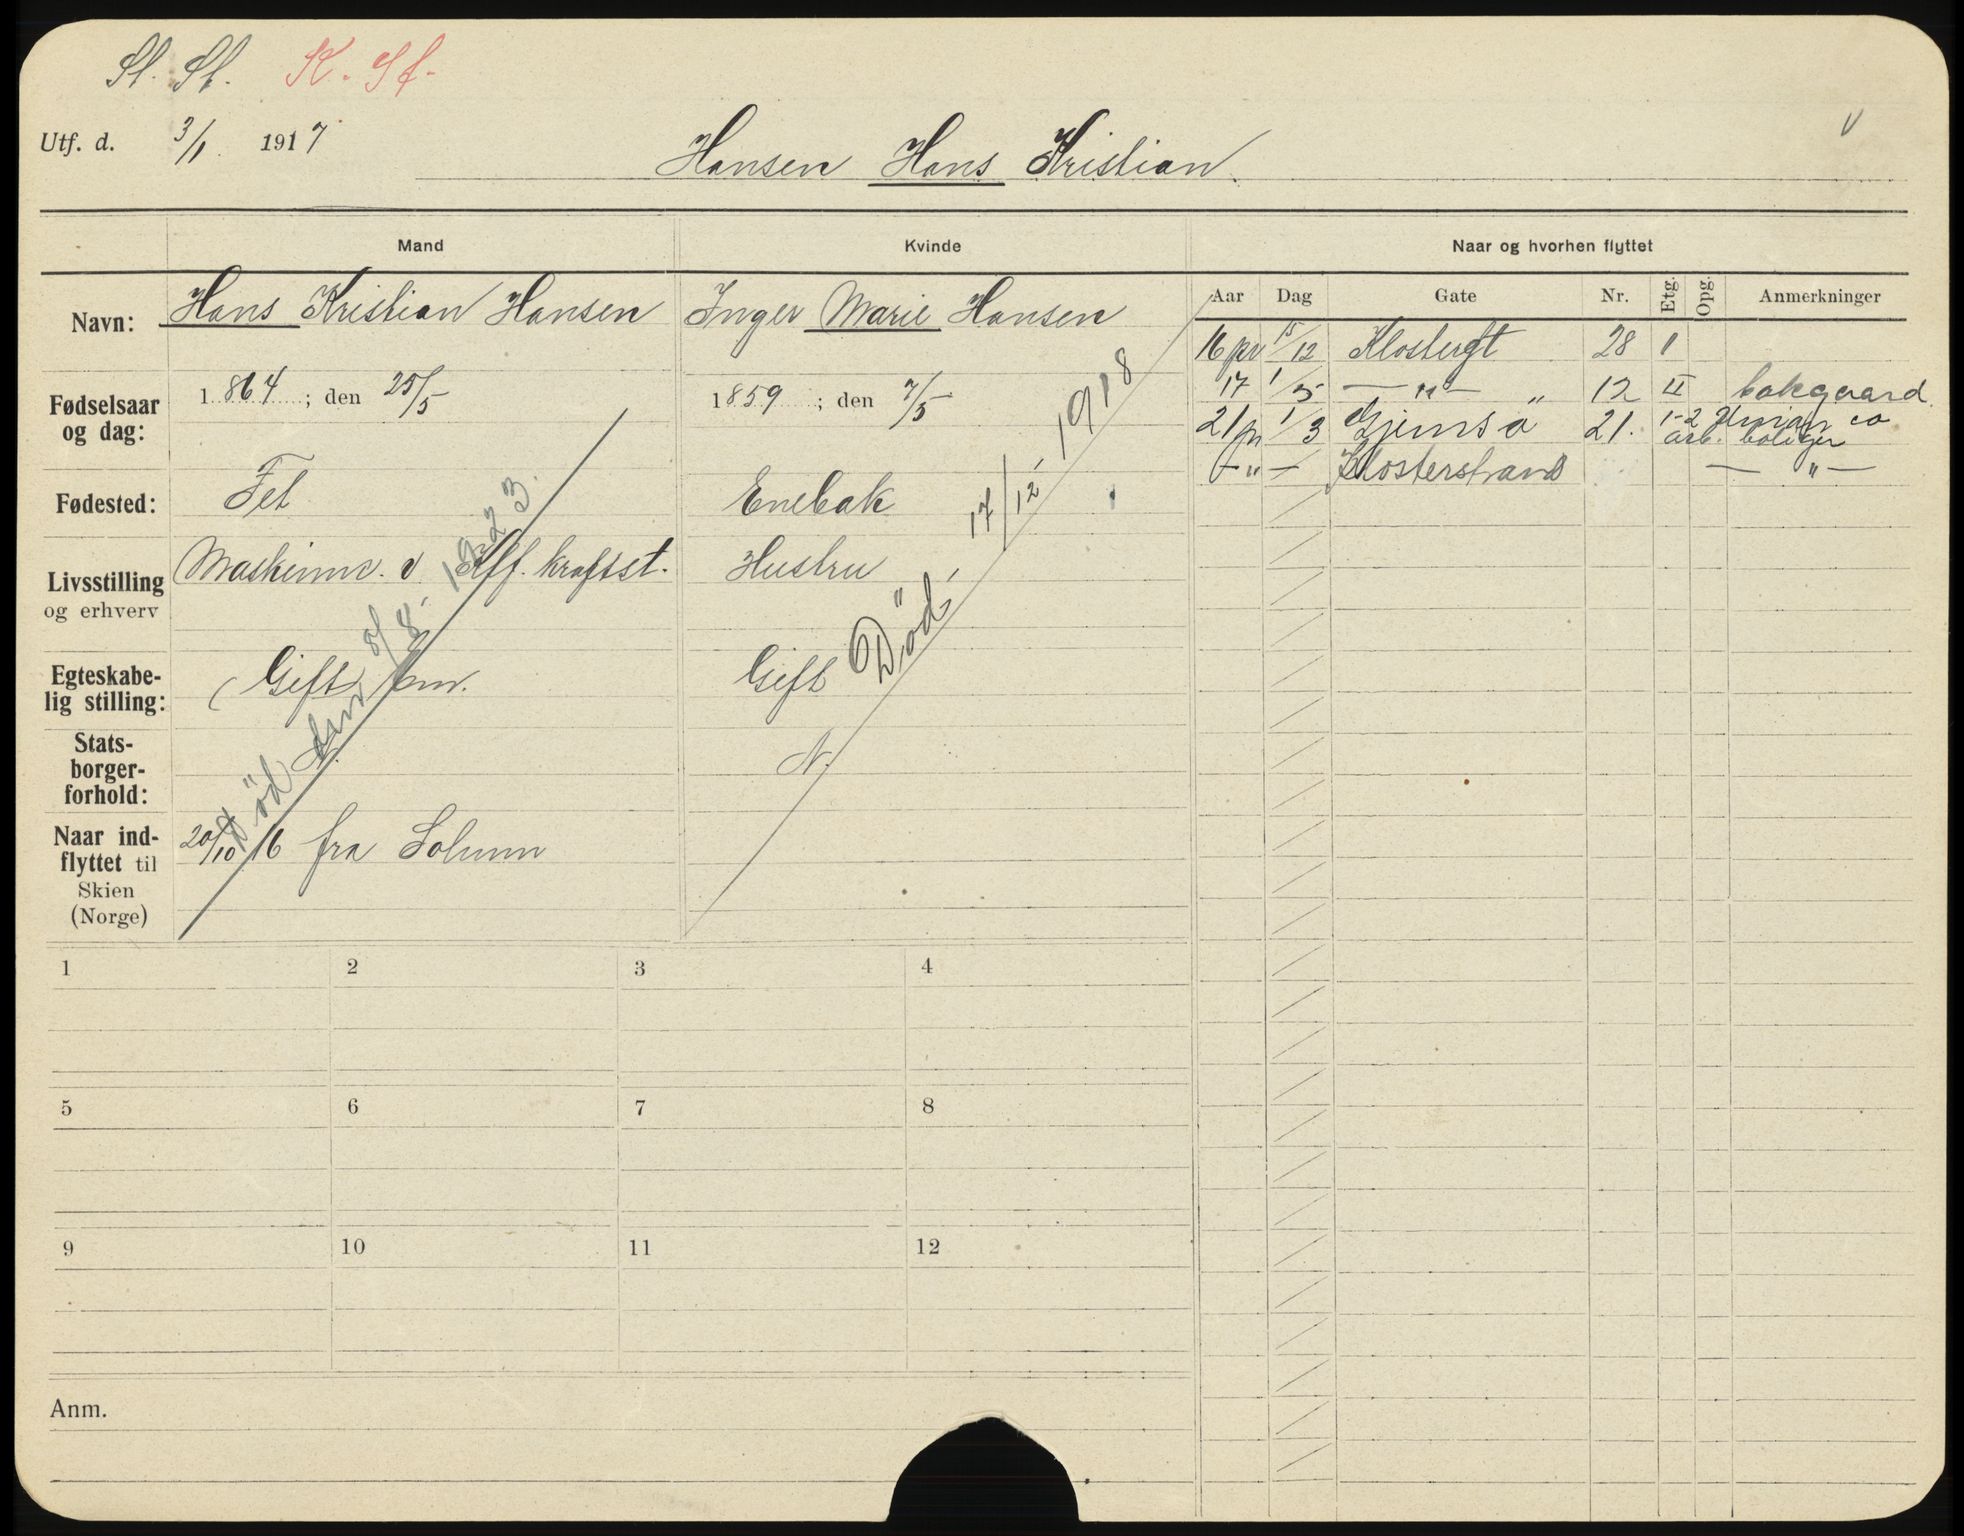 St. St. K. Sf.
Utf. d. 3/1 1917
Hansen Hans Kristian.
v
Mand
Kvinde
Naar og hvorhen flyttet
Navn:
Hans Kristian Hansen
Inger Marie Hansen
Aar Dag Gate Nr. Etg. Opg. Anmerkninger
16 pr 15/12 Klostergt 28 I
17 1/5 — " — 12 II bakgaard.
21 pr 1/3 Gjemsø 21. 1-2 Union co
arb. boliger
— " — Klosterstrand — " —
Fødselsaar
og dag:
1864; den 25/5
1859; den 7/5
Fødested:
Fet
Enebak
Livsstilling
og erhverv
Maskinm. v. kraftst.
Hustru
Egteskabe-
lig stilling:
Gift Em.
Gift
Stats-
borger-
forhold:
N.
N.
Naar ind-
flyttet til
Skien
(Norge)
20/10 16 fra Solum
Død den 8. 1923.
Død, 17/12, 1918
1 2 3 4
5 6 7 8
9 10 11 12
Anm.